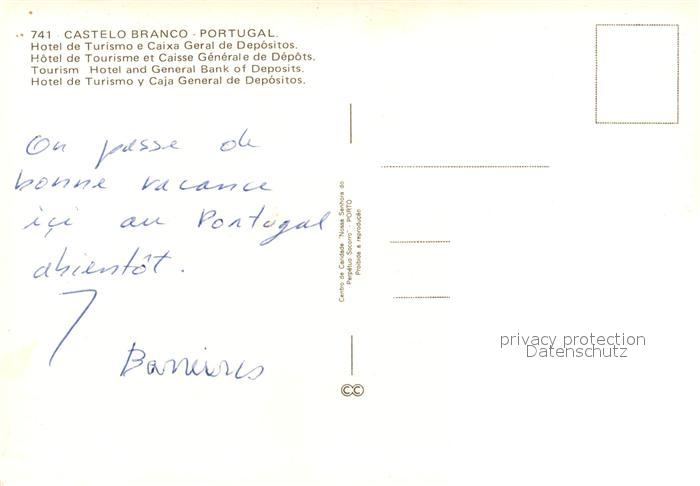 741 · CASTELO BRANCO - PORTUGAL.
Hotel de Turismo e Caixa Geral de Depósitos.
Hôtel de Tourisme et Caisse Générale de Dépôts.
Tourism Hotel and General Bank of Deposits.
Hotel de Turismo y Caja General de Depósitos.
On passe de
bonne vacance
içi au Portugal
abientôt.
Centro de Caridade "Nossa Senhora do
Perpétuo Socorro" - PORTO
Proibida a reprodução
privacy protection
Datenschutz
CC